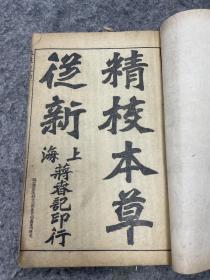 精校本草
從新
上海蔣春記印行